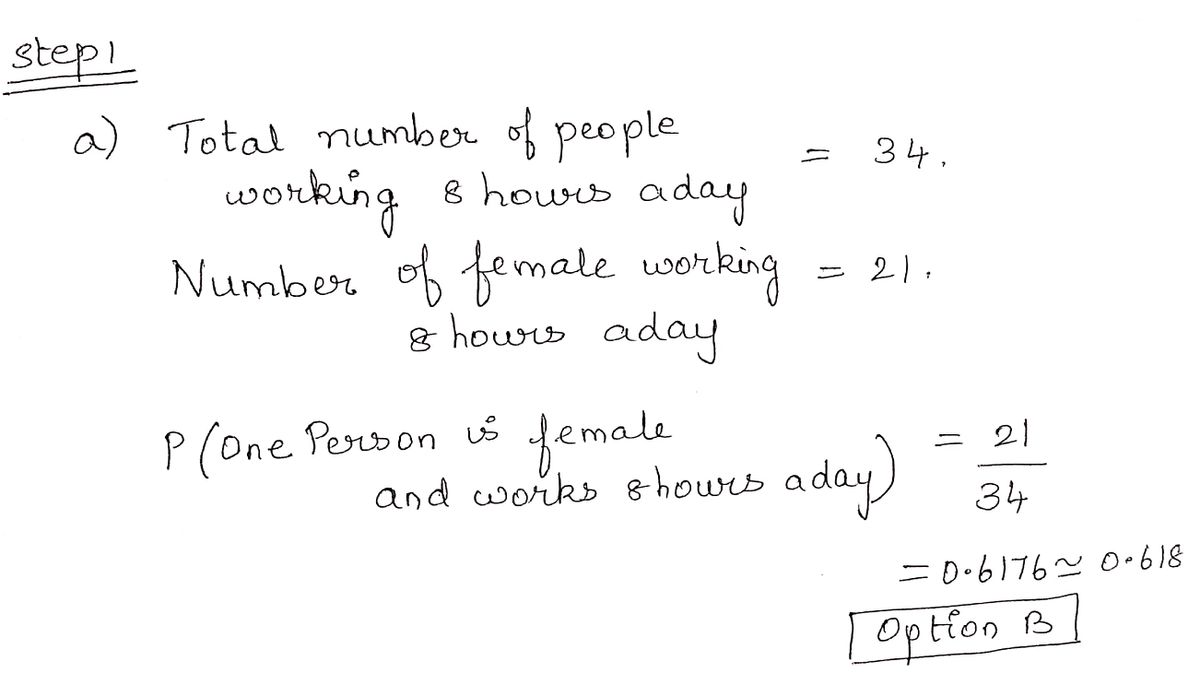 step1
a) Total number of people = 34.
working 8 hours aday
Number of female working = 21.
8 hours aday
P(One Person is female = 21
and works 8hours aday) 34
= 0.6176 ≃ 0.618
Option B